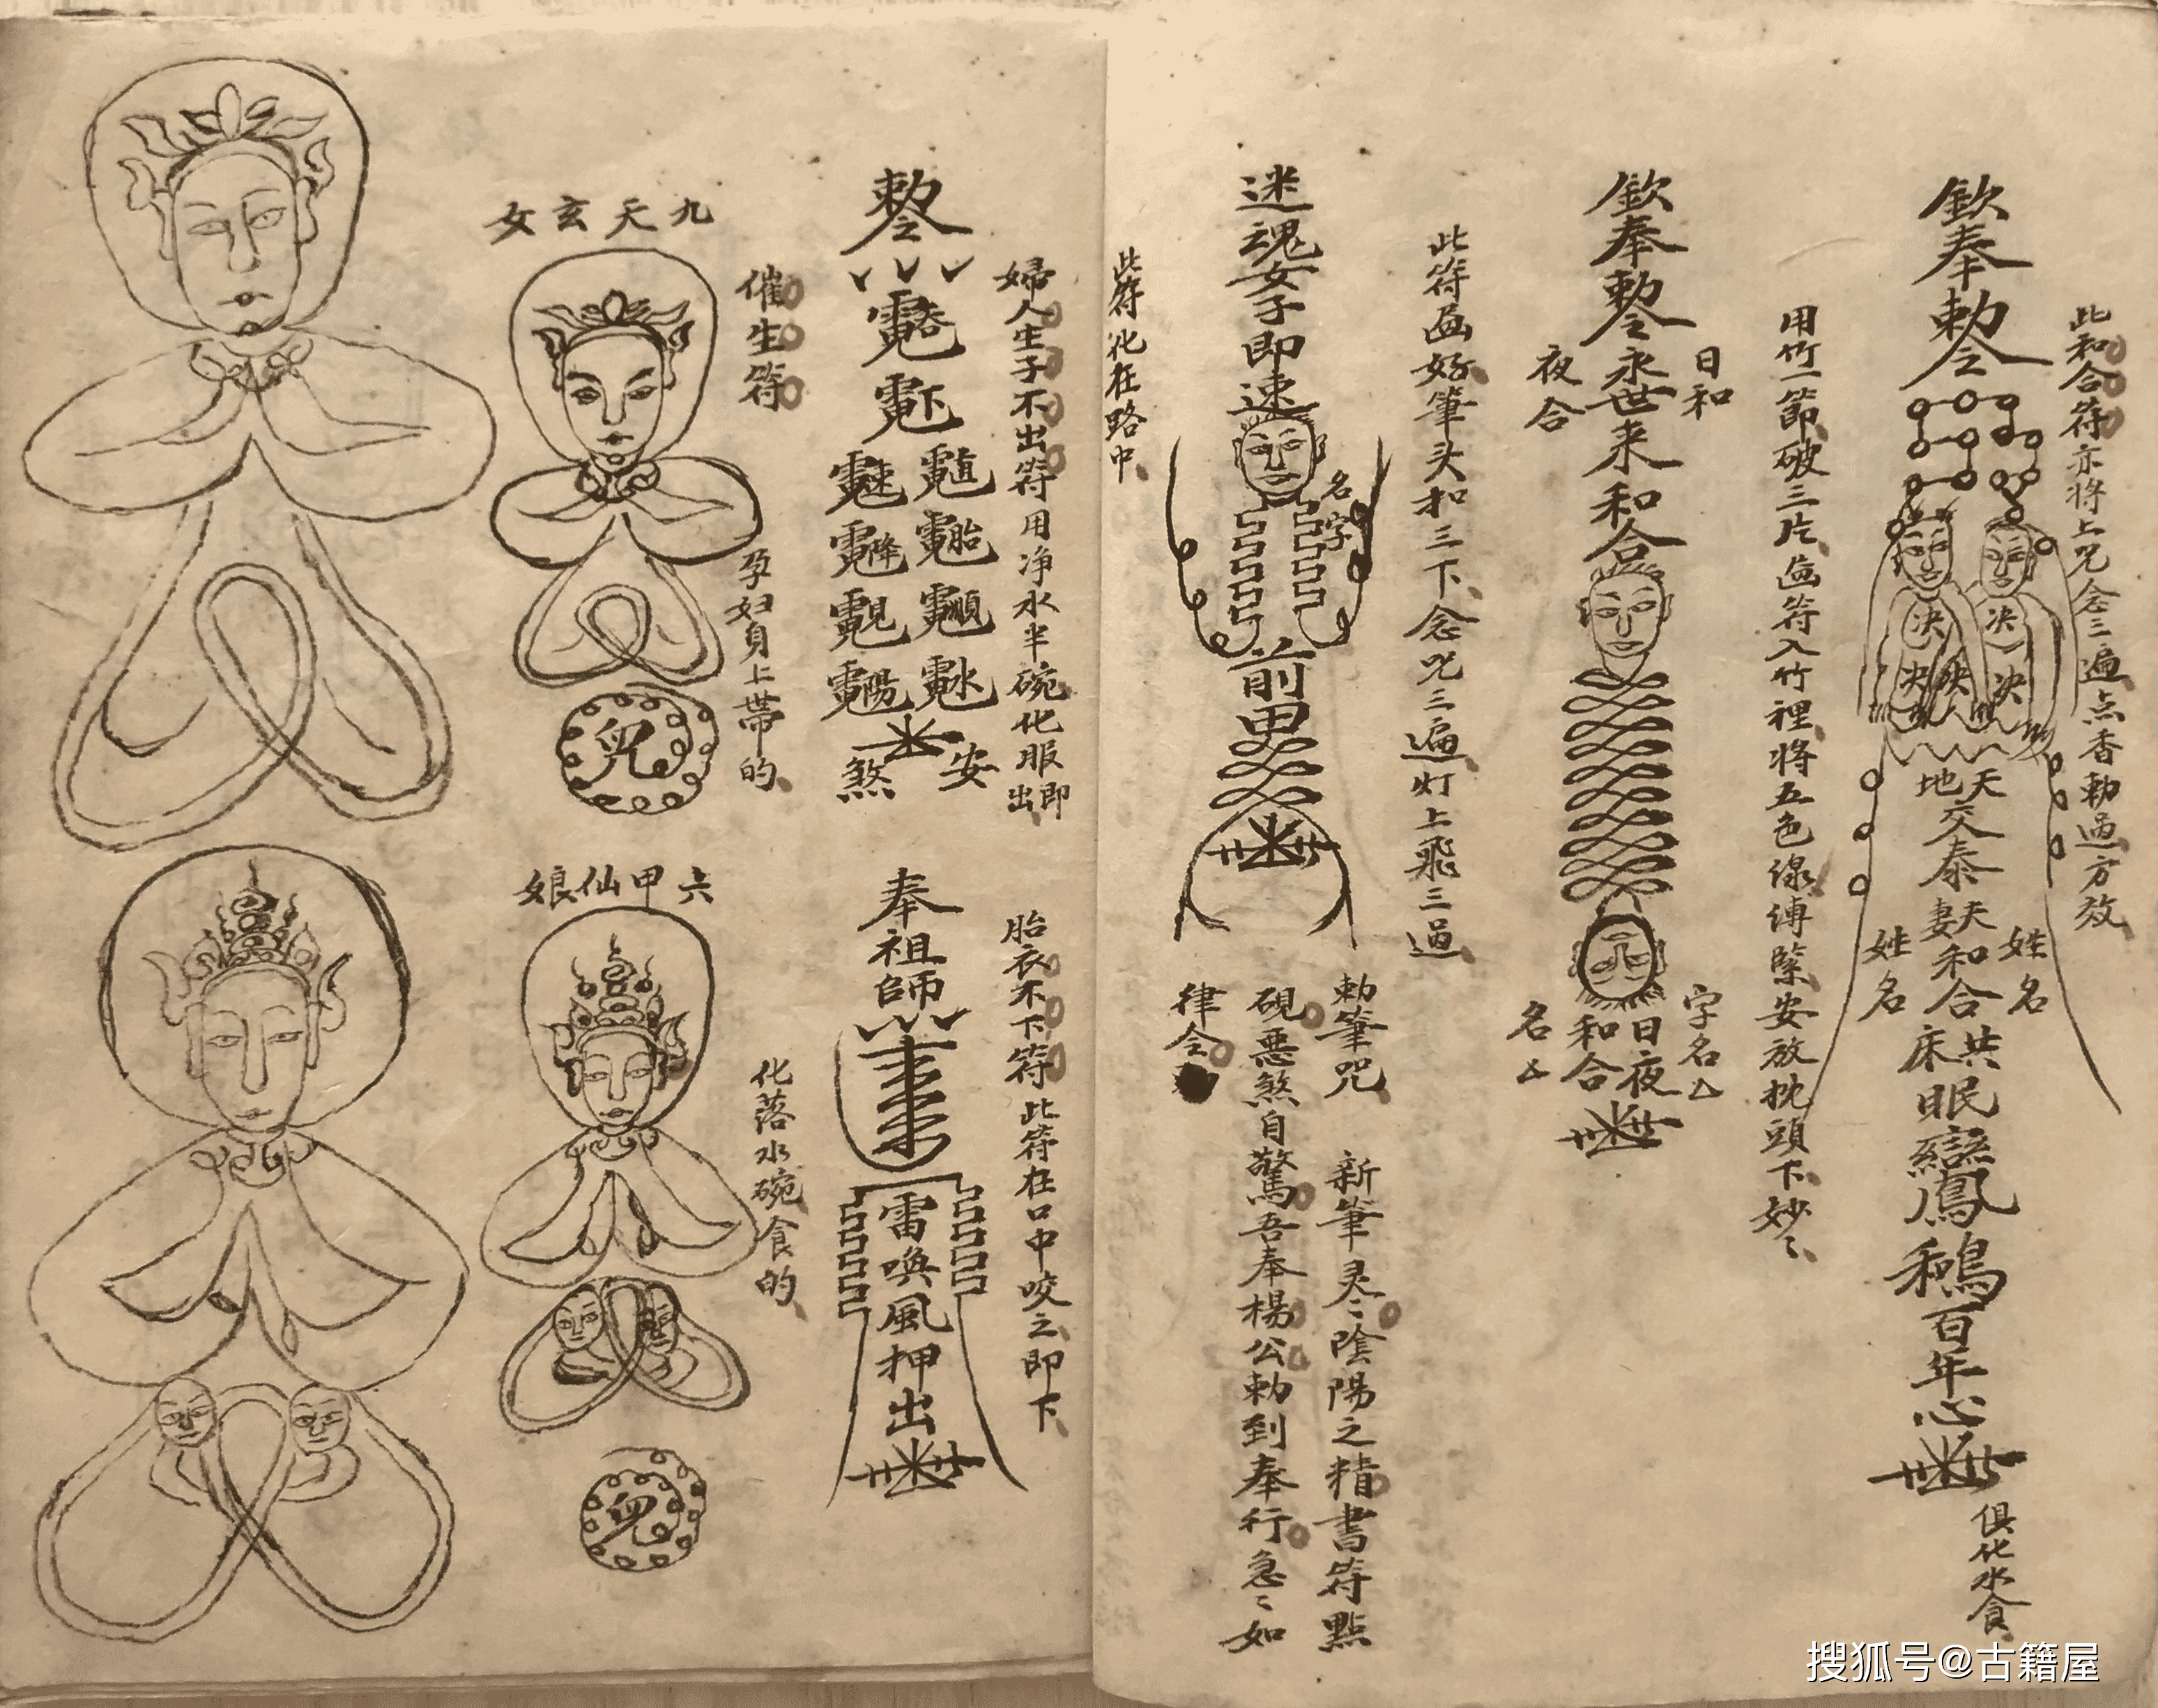 此和合符亦將上咒念三遍点香勅過方效
欽奉勅令
决决决决决
天地交泰
夫妻和合
共床眠
鸞鳳和鳴百年心
姓名
姓名
俱化水食
用竹一節破三片画符入竹裡將五色線縛緊安放枕頭下妙〻
欽奉勅令永世来和合
日和
夜合
日夜和合
字名厶
名厶
此符画好筆头扣三下念咒三遍灯上飛三過
迷魂女子即速
名字
前男
勅筆咒
新筆灵〻陰陽之精書符點
硯惡煞自驚吾奉楊公勅到奉行急〻如
律令
此符化在路中
婦人生子不出符用净水半碗化服即出
勅令
煞
安
胎衣不下符此符在口中咬之即下
奉祖師
雷喚風押出
催生符
孕妇身上带的
化落水碗食的
九天玄女
六甲仙娘
搜狐号@古籍屋